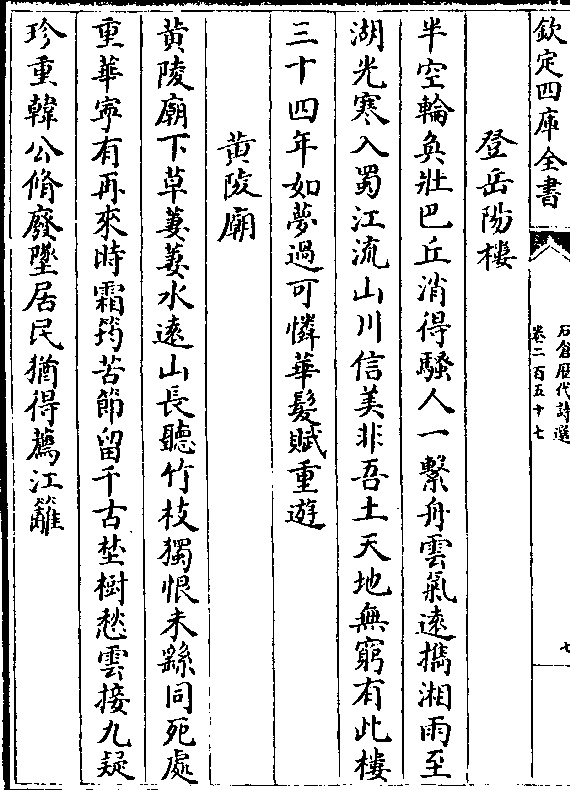 欽定四庫全書
石倉歷代詩選
卷二百五十七
七
登岳陽樓
半空輪奐壯巴丘消得騷人一繫舟雲氣遠攜湘雨至
湖光寒入蜀江流山川信美非吾土天地無窮有此樓
三十四年如夢過可憐華髮賦重遊
黄陵廟
黄陵廟下草萋萋水遠山長聽竹枝獨恨未繇同死處
重華寧有再來時霜筠苦節留千古埜樹愁雲接九疑
珍重韓公脩廢墜居民猶得薦江蘺